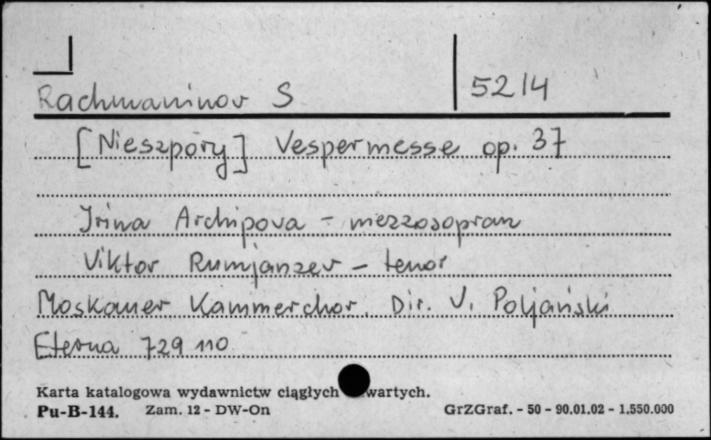 Rachmaninov S
5214
[Nieszpory] Vespermesse op. 37
Irina Archipova - mezzosopran
Viktor Rumjanzev - tenor
Moskauer Kammerchor. Dir. V. Poljański
Eterna 729 110
Karta katalogowa wydawnictw ciągłych wartych.
Pu-B-144. Zam. 12 - DW-On GrZGraf. - 50 - 90.01.02 - 1.550.000